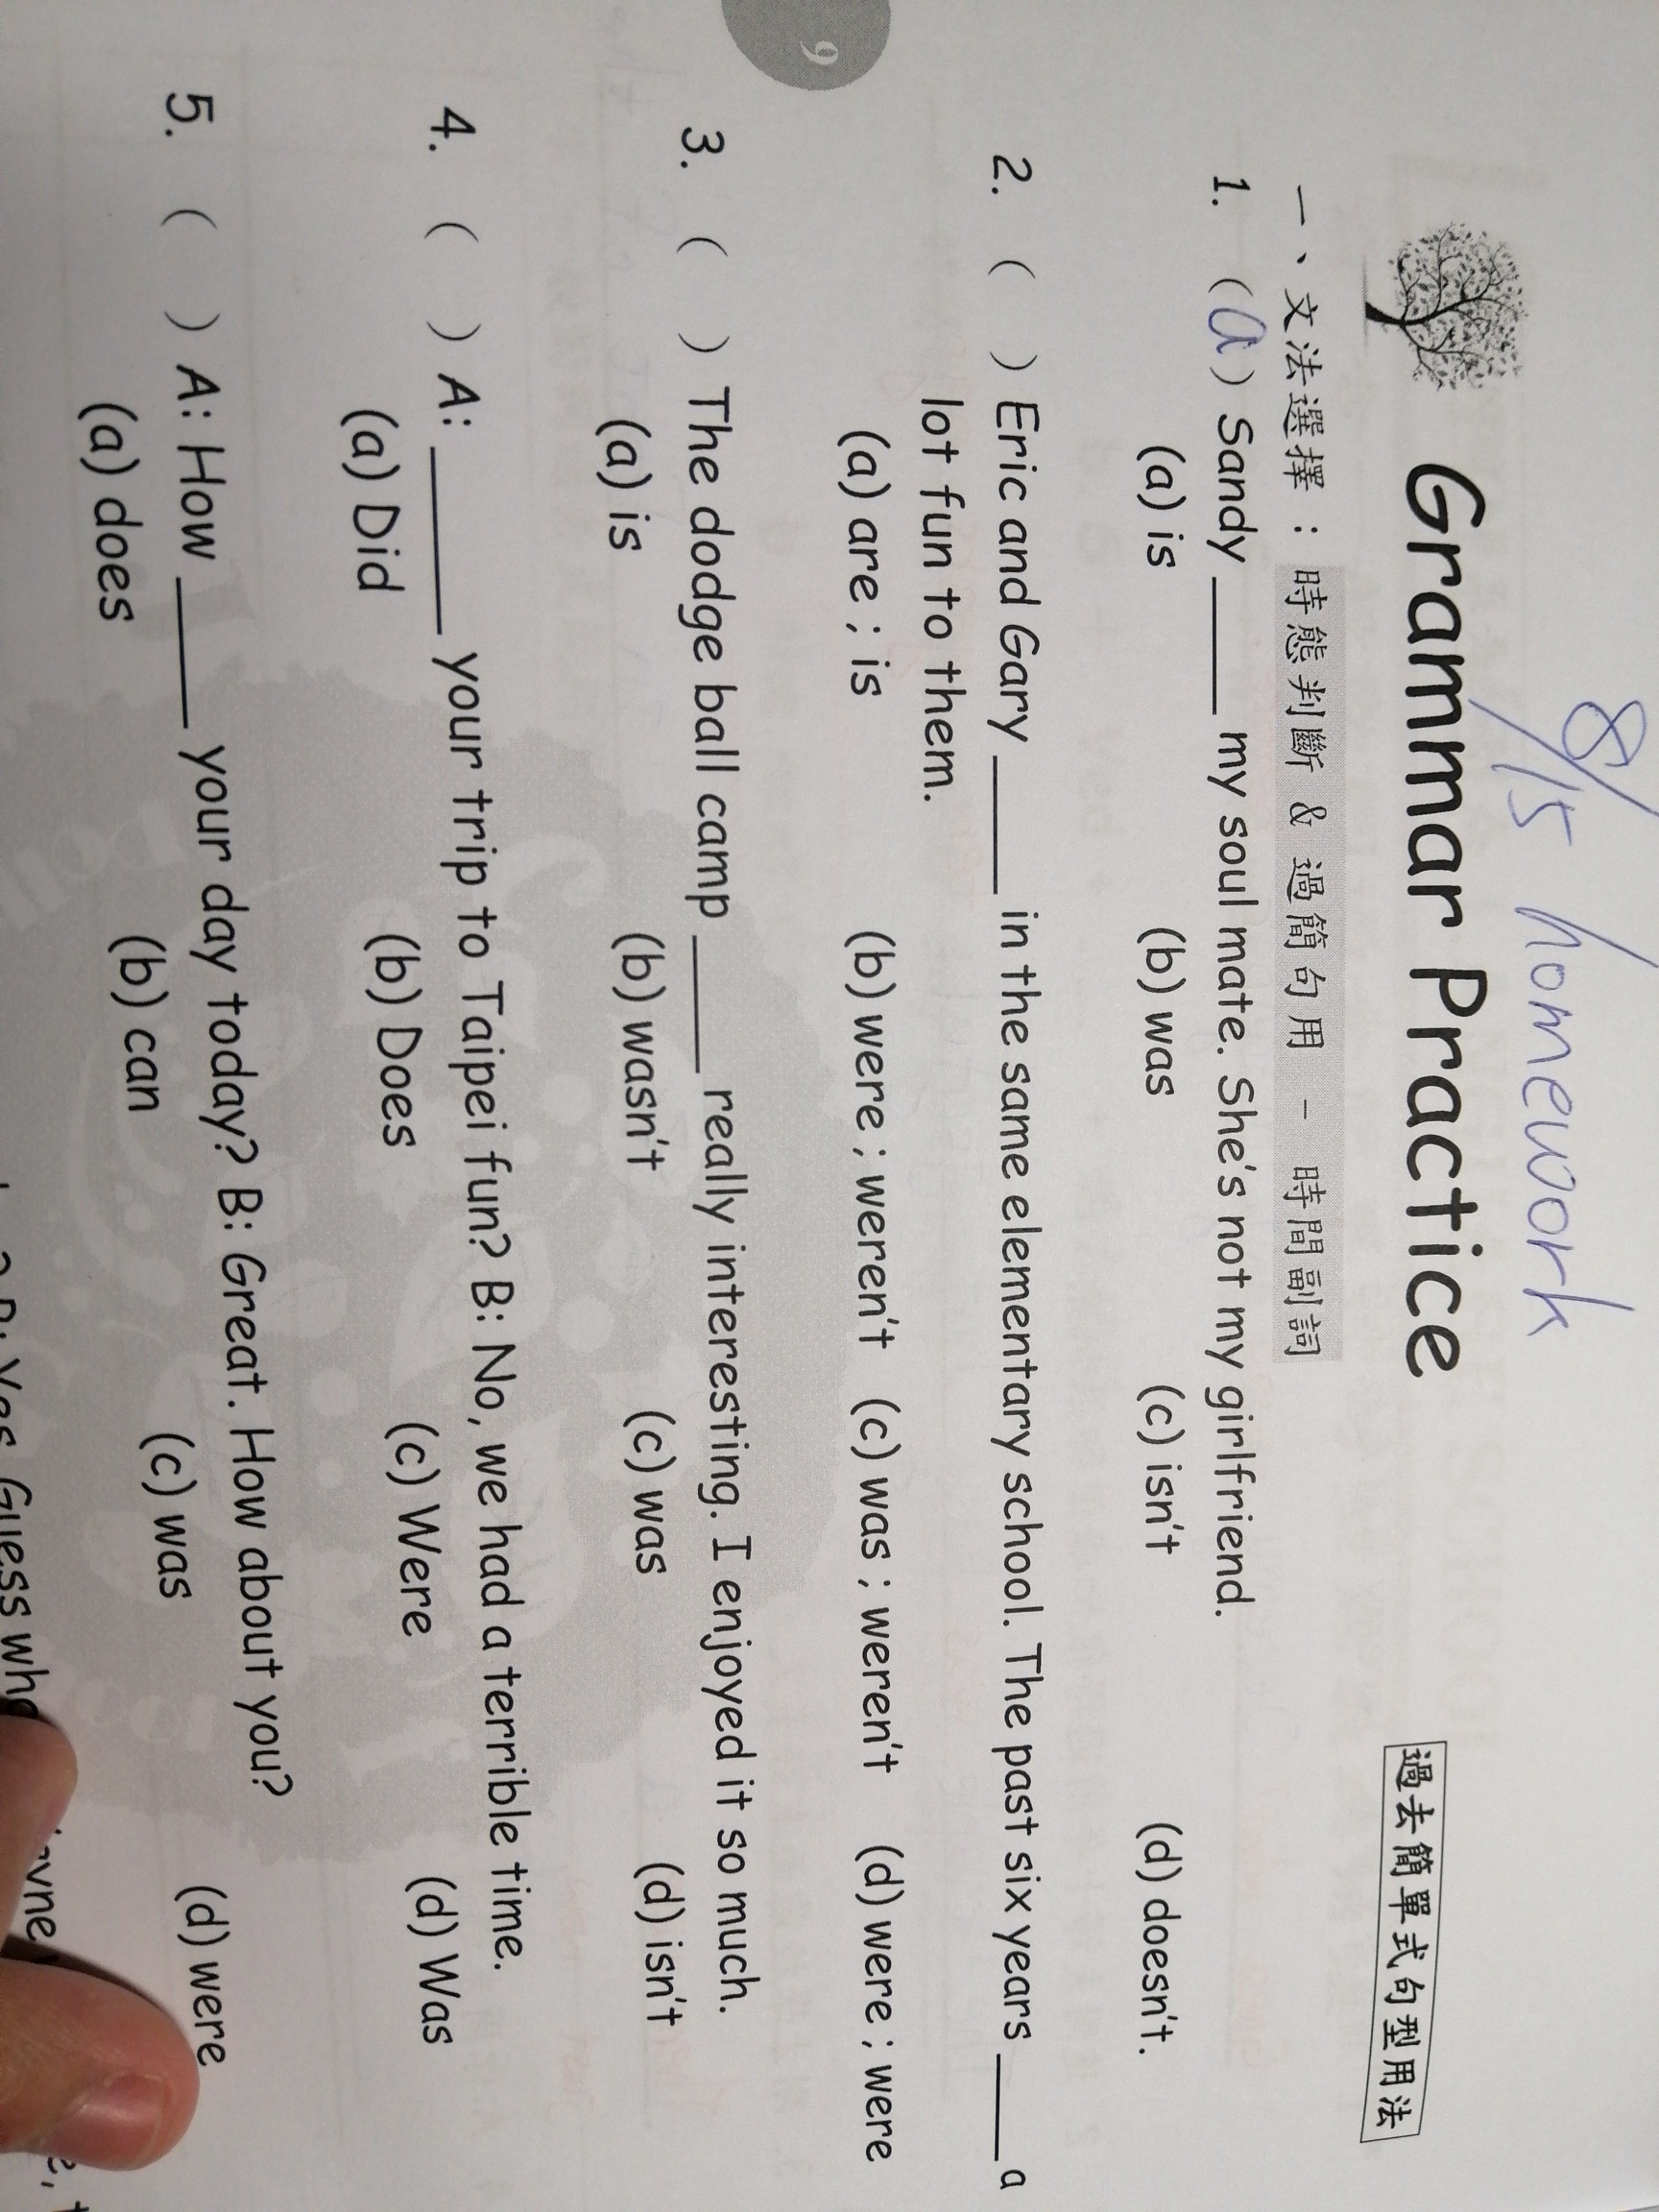 8/15 homework
Grammar Practice
過去簡單式句型用法
一、文法選擇：時態判斷 & 過簡句用 - 時間副詞
1. (a) Sandy _____ my soul mate. She's not my girlfriend.
(a) is (b) was (c) isn't (d) doesn't.
2. ( ) Eric and Gary _____ in the same elementary school. The past six years _____ a
lot fun to them.
(a) are ; is (b) were ; weren't (c) was ; weren't (d) were ; were
3. ( ) The dodge ball camp _____ really interesting. I enjoyed it so much.
(a) is (b) wasn't (c) was (d) isn't
4. ( ) A: _____ your trip to Taipei fun? B: No, we had a terrible time.
(a) Did (b) Does (c) Were (d) Was
5. ( ) A: How _____ your day today? B: Great. How about you?
(a) does (b) can (c) was (d) were
Guess
9